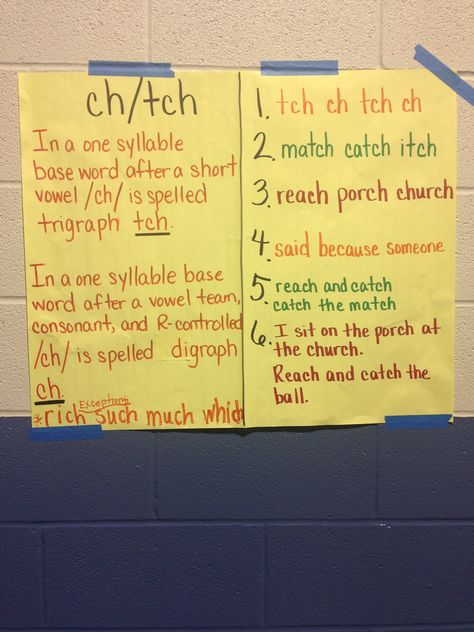 ch/tch
In a one syllable
base word after a short
vowel /ch/ is spelled
trigraph tch.
In a one syllable base
word after a vowel team,
consonant, and R-controlled
/ch/ is spelled digraph
ch.
Exceptions
*rich such much which
1. tch ch tch ch
2. match catch itch
3. reach porch church
4. said because someone
5. reach and catch
catch the match
6. I sit on the porch at
the church.
Reach and catch the
ball.